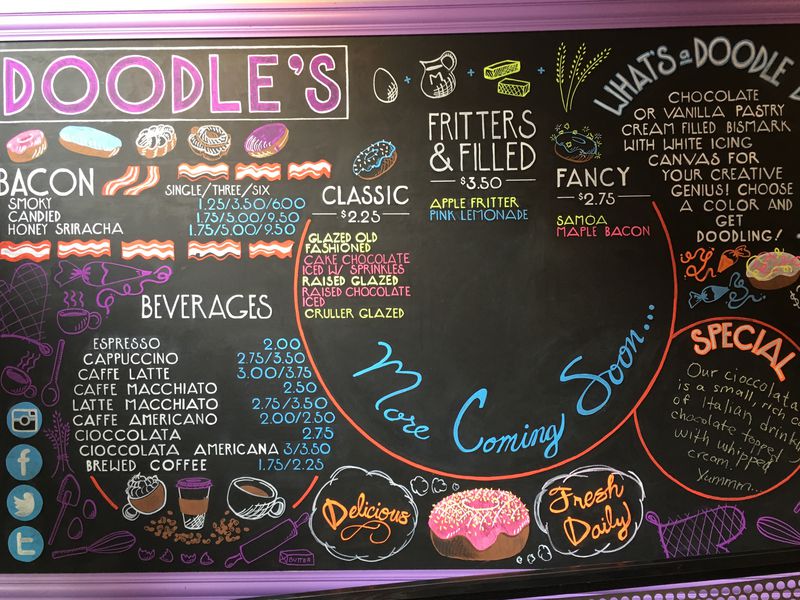 DOODLE'S
BACON
SINGLE/THREE/SIX
SMOKY 1.25/3.50/6.00
CANDIED 1.75/5.00/9.50
HONEY SRIRACHA 1.75/5.00/9.50
BEVERAGES
ESPRESSO 2.00
CAPPUCCINO 2.75/3.50
CAFFE LATTE 3.00/3.75
CAFFE MACCHIATO 2.50
LATTE MACCHIATO 2.75/3.50
CAFFE AMERICANO 2.00/2.50
CIOCCOLATA 2.75
CIOCCOLATA AMERICANA 3/3.50
BREWED COFFEE 1.75/2.25
BUTTER
CLASSIC
$2.25
GLAZED OLD
FASHIONED
CAKE CHOCOLATE
ICED W/ SPRINKLES
RAISED GLAZED
RAISED CHOCOLATE
ICED
CRULLER GLAZED
+ + +
FRITTERS
& FILLED
$3.50
APPLE FRITTER
PINK LEMONADE
FANCY
$2.75
SAMOA
MAPLE BACON
More Coming Soon...
Delicious
Fresh
Daily
WHAT'S a DOODLE D
CHOCOLATE
OR VANILLA PASTRY
CREAM FILLED BISMARK
WITH WHITE ICING
CANVAS FOR
YOUR CREATIVE
GENIUS! CHOOSE
A COLOR AND
GET
DOODLING!
SPECIAL
Our cioccolata
is a small, rich c
of Italian drink
chocolate topped
with whipped
cream!!
Yummm...